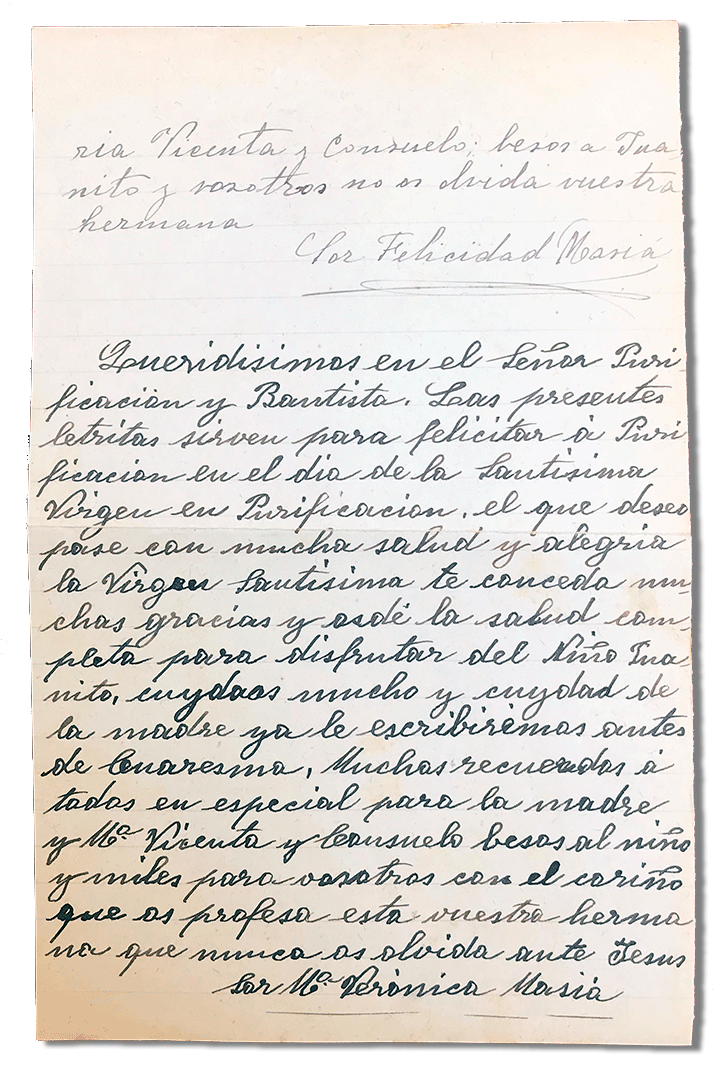 ria Vicenta y Consuelo; besos a Jua-
nito y vosotros no os olvida vuestra
hermana
Sor Felicidad Masiá
Queridisimos en el Señor Puri-
ficación y Bautista. Las presentes
letritas sirven para felicitar á Puri-
ficacion en el dia de la Santisima
Virgen en Purificacion, el que deseo
pase con mucha salud y alegria
la Virgen Santisima te conceda mu-
chas gracias y osdé la salud com-
pleta para disfrutar del Niño Jua-
nito, cuydaos mucho y cuydad de
la madre ya le escribirémos antes
de Cuaresma, Muchos recuerdos á
todos en especial para la madre
y Mª Vicenta y Consuelo besos al niño
y miles para vosotros con el cariño
que os profesa esta vuestra herma
na que nunca os olvida ante Jesus
Sor Mª Verónica Masiá